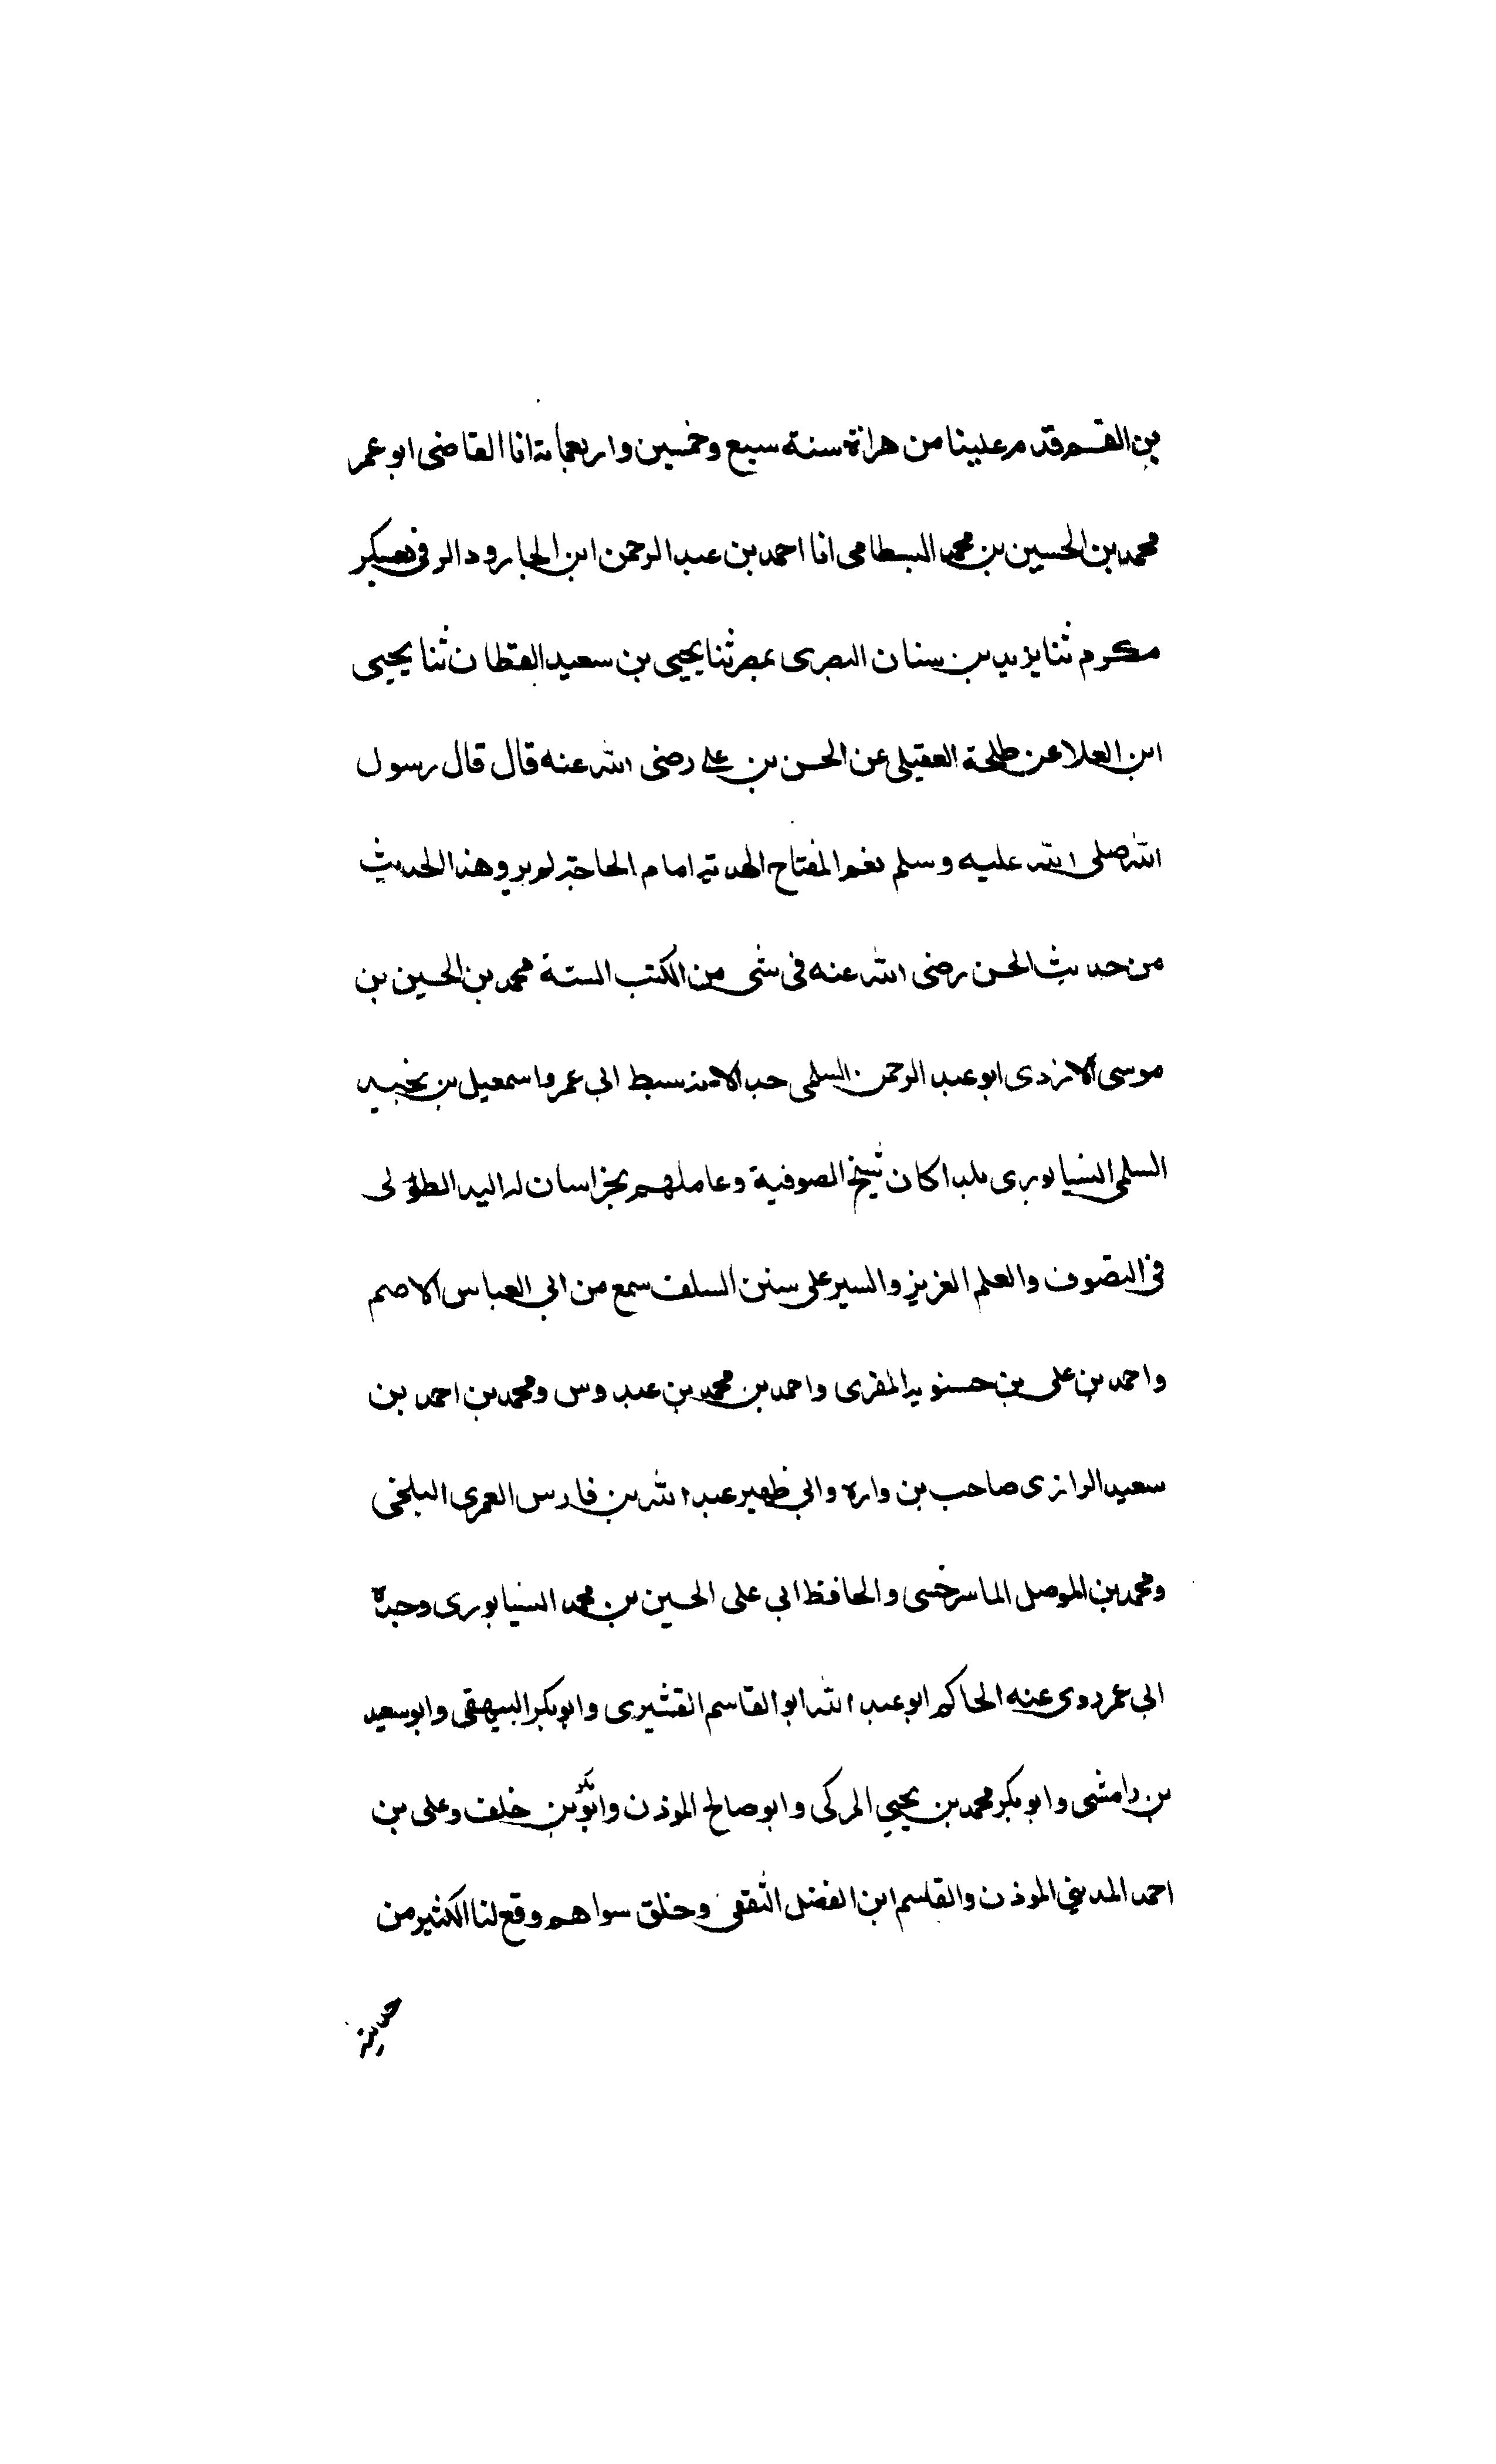 بن القسم قدم علينا من هراة سنة سبع وخمسين واربعماية انا القاضى ابو عمر
محمد بن الحسين بن محمد البسطامى انا احمد بن عبد الرحمن ابن الجارود الرقى بعسكر
مكرم ثنا يزيد بن سنان البصرى بمصر ثنا يحيى بن سعيد القطان ثنا يحيى
ابن العلا عن طلحة العقيلى عن الحسن بن على رضى الله عنه قال قال رسول
الله صلى الله عليه وسلم نعم المفتاح الهدية امام الحاجة لم يرو هذا الحديث
من حديث الحسن رضى الله عنه فى شى من الكتب الستة محمد بن الحسين بن
موسى الازدى ابو عبد الرحمن السلمى حب الامذ سبط ابى عمرو اسمعيل بن نجيد
السلمى النسيابورى بلدا كان شيخ الصوفية وعاملهم بخراسان له اليد الطولى
فى التصوف والعلم الغزيز والسير على سنن السلف سمع من ابى العباس الاصم
واحمد بن على بن حسنويه المقرى واحمد بن محمد بن عبدوس ومحمد بن احمد بن
سعيد الرازى صاحب بن واره وابى ظهير عبد الله بن فارس العمرى البلخى
ومحمد بن الموصل الماسرخسى والحافظ ابى على الحسين بن محمد النسيابورى وجده
ابى عمر روى عنه الحاكم ابو عبد الله ابو القاسم القشيرى وابو بكر البيهقى وابو سعيد
بن رامشى وابو بكر محمد بن يحيى المركى وابو صالح الموذن وابو بكر بن خلف وعلى بن
احمد المدينى الموذن والقاسم ابن الفضل الثقفى وخلق سواهم وقع لنا الكثير من
حديثه